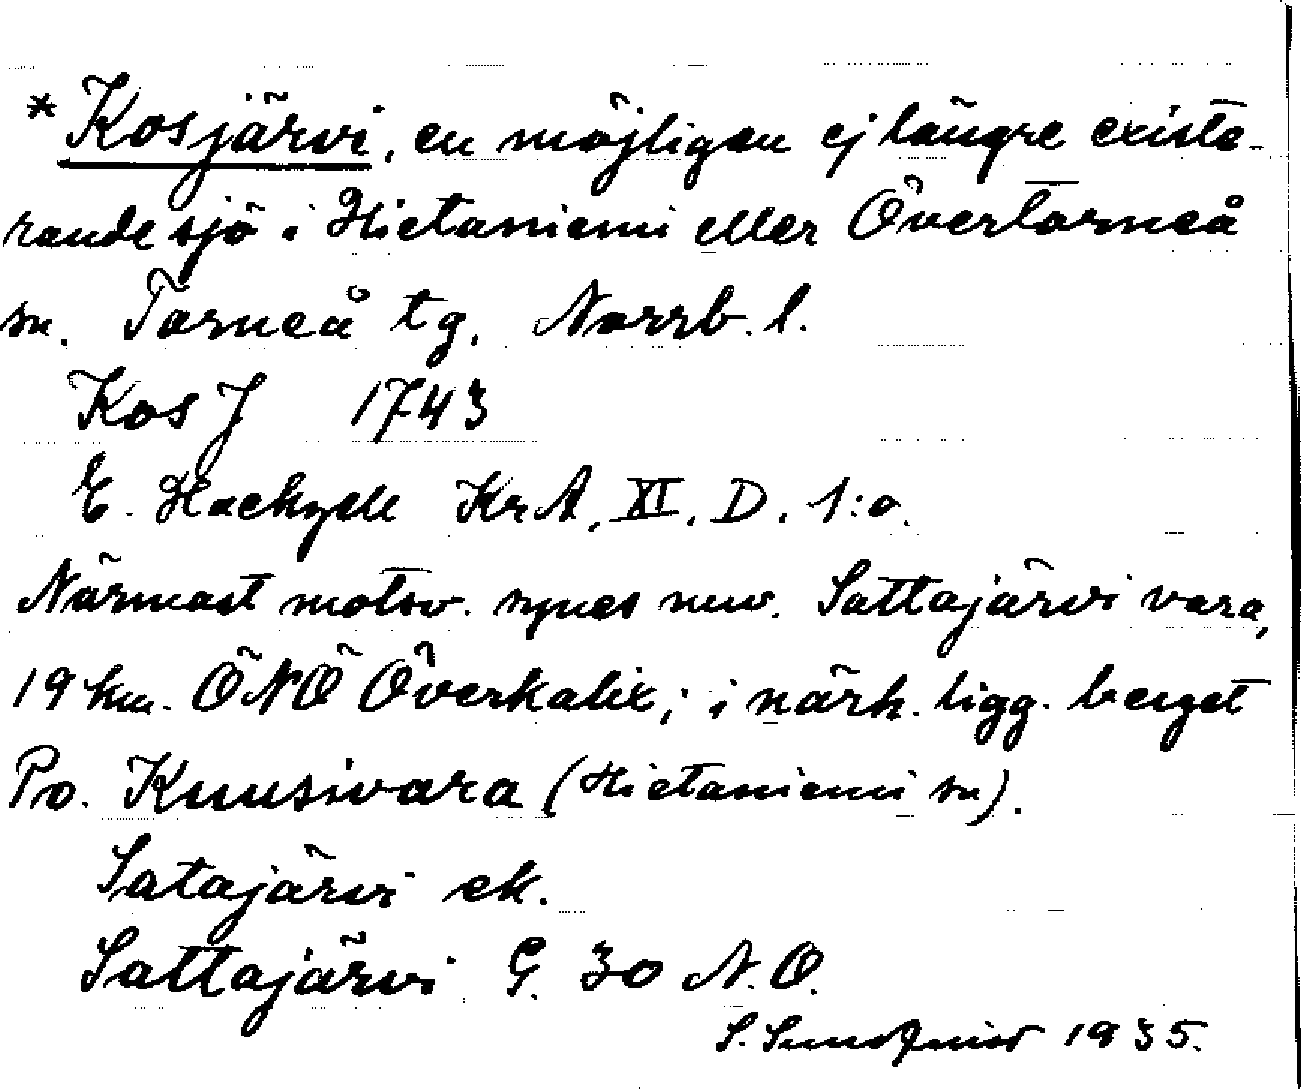 * Kosjärvi, en möjligen ej längre existe-
rande sjö i Hietaniemi eller Övertorneå
sn. Torneå tg. Norrb. l.
Kos J 1743
E. Hackzell KrA. XI. D. 1:o.
Närmast motsv. synes nuv. Sattajärvi vara,
19 km. ÖNÖ Överkalix; i närh. ligg. berget
Po. Kuusivara (Hietaniemi sn).
Satajärvi ek.
Sattajärvi G. 30 N.O.
S. Sundqvist 1935.